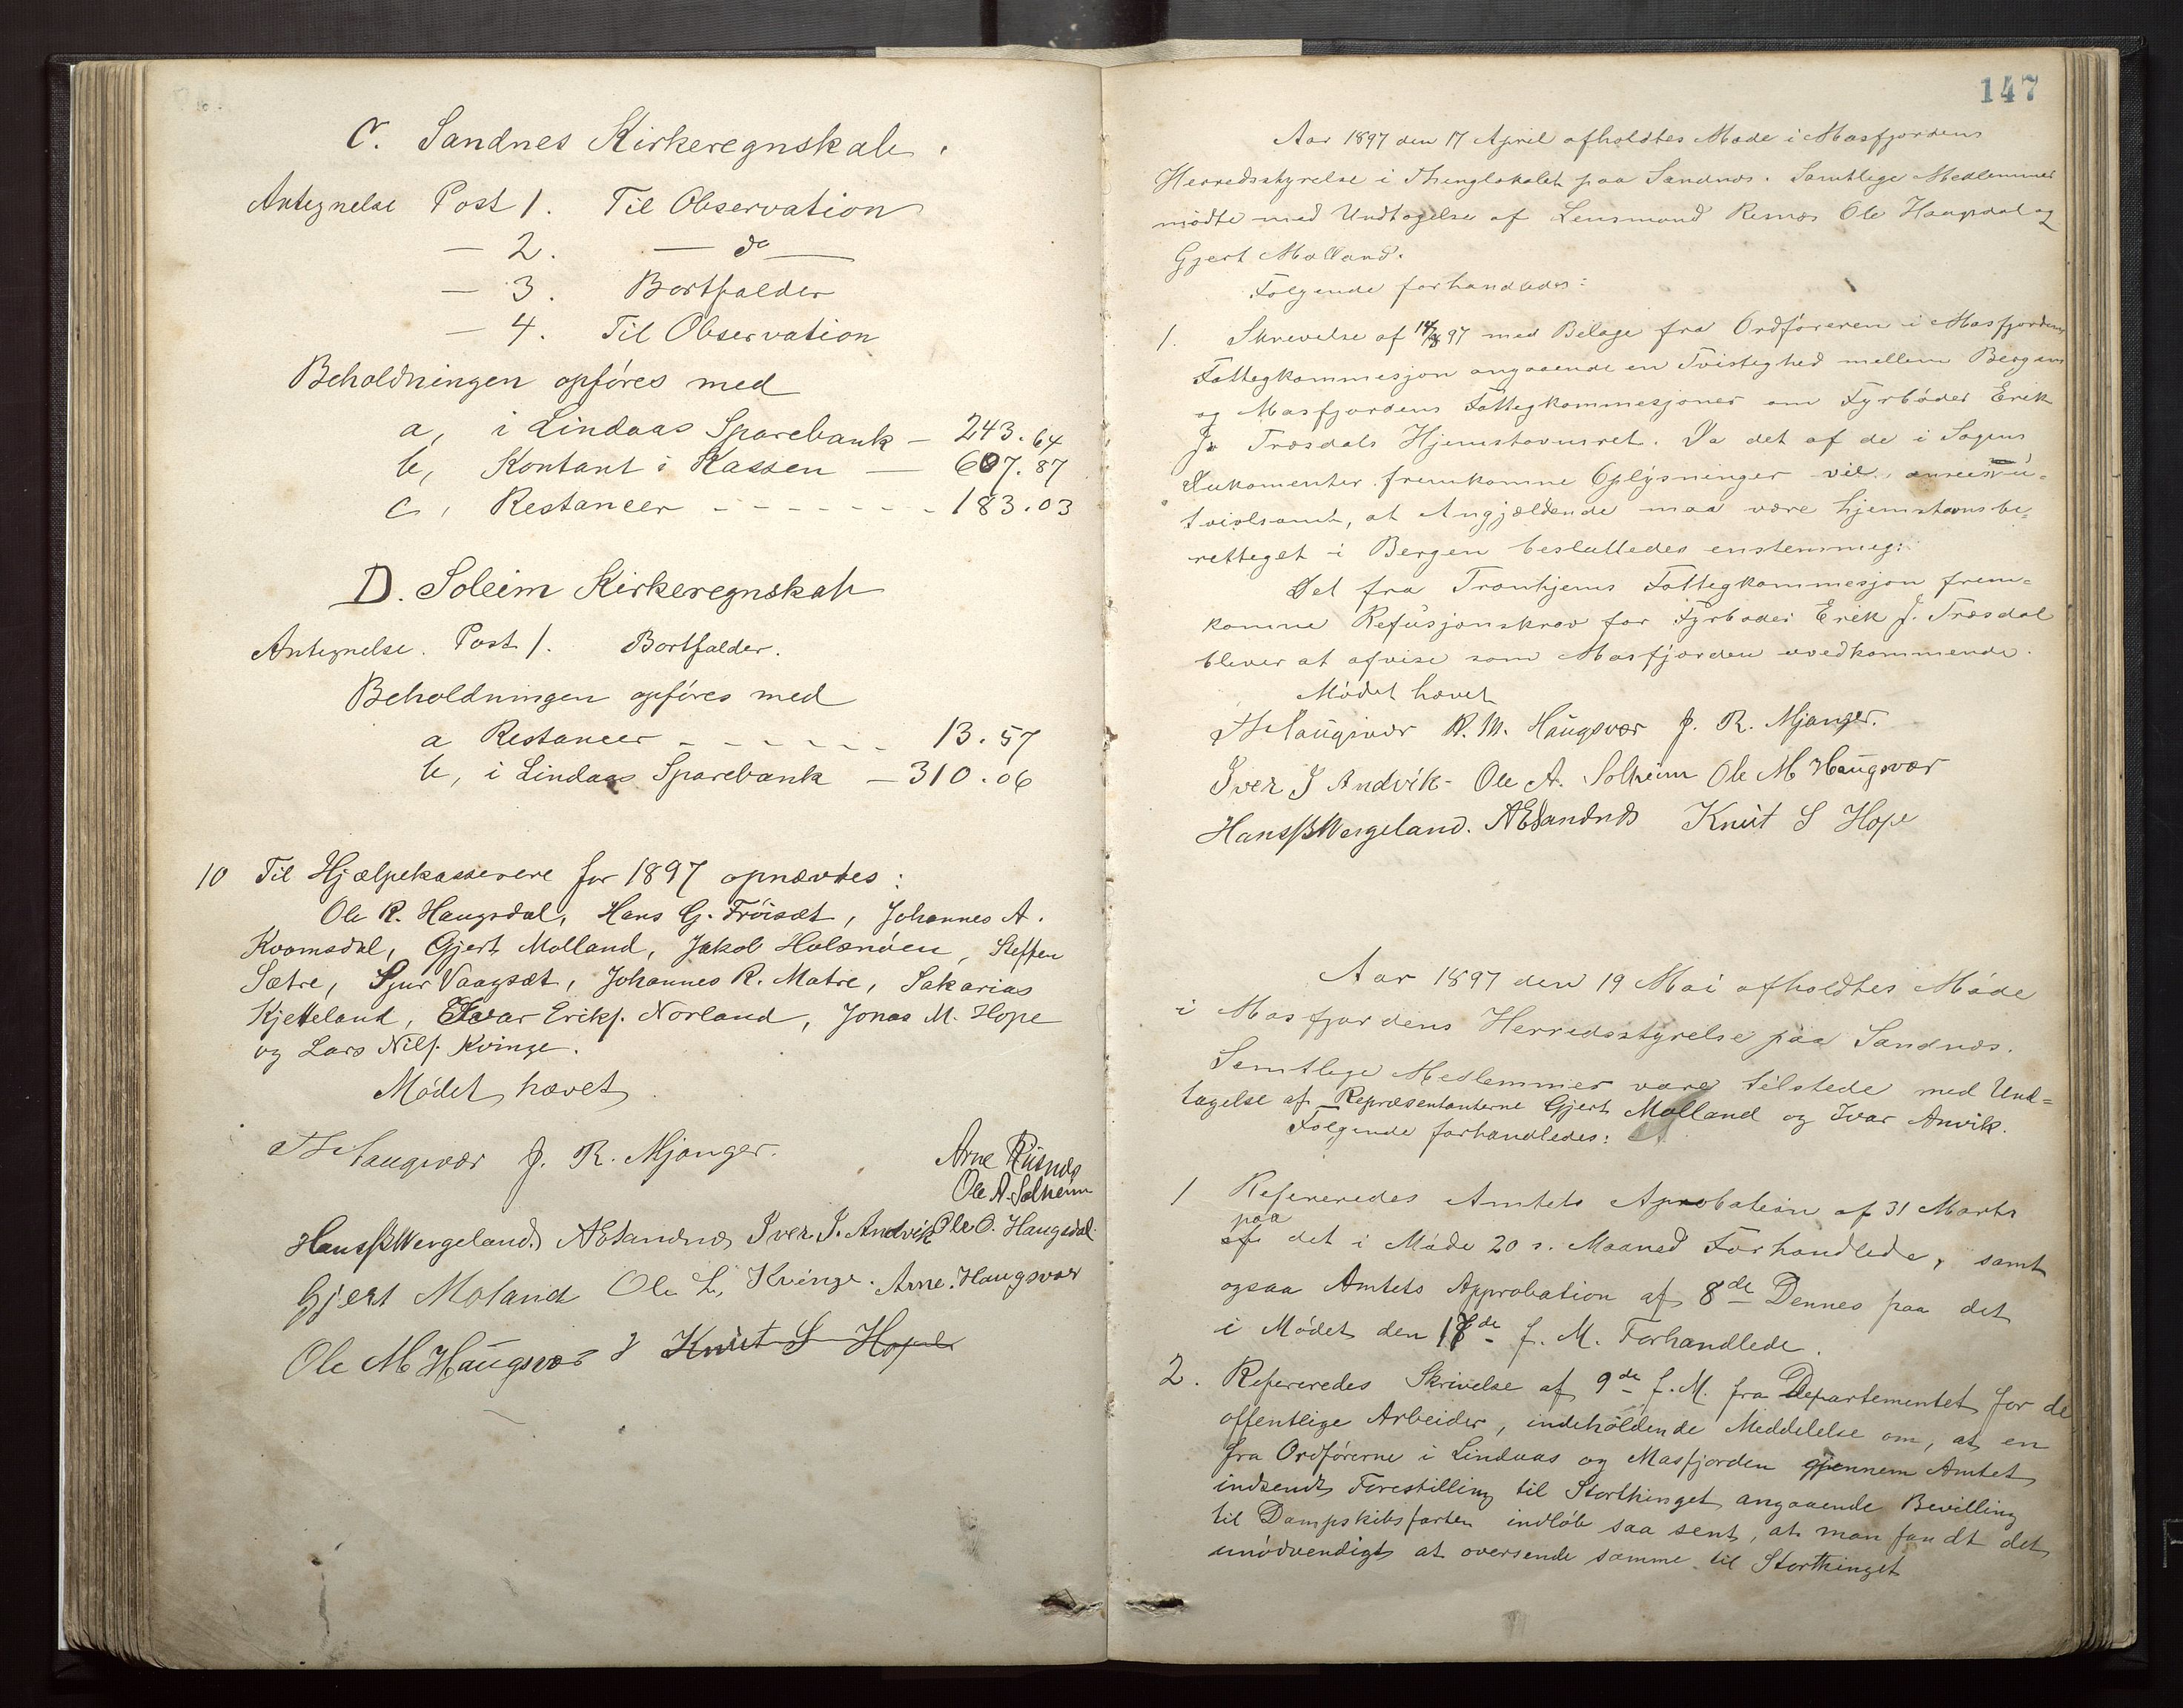 C. Sandnes Kirkeregnskab.
Antegnelse Post 1. Til Observation
— 2. — do —
— 3. Bortfalder
— 4. Til Observation
Beholdningen opføres med
a, i Lindaas Sparebank — 243.64
b, Kontant i Kassen — 607.87
c, Restancer - - - - - - - 183.03
D. Soleim Kirkeregnskab
Antegnelse. Post 1. Bortfalder.
Beholdningen opføres med
a Restancer - - - - - - 13.57
b, i Lindaas Sparebank — 310.06
10 Til Hjælpekasserere for 1897 opnævntes:
Ole R. Haugsdal, Hans G. Frøiset, Johannes A.
Kvamsdal, Gjert Molland, Jakob Holsnøen, Steffen
Sætre, Sjur Vaagsæt, Johannes R. Matre, Sakarias
Kjetteland, Ivar Eriks. Norland, Jonas M. Hope
og Lars Nils. Kvinge.
Mødet hævet
Haugsvær J. R. Mjanger.
Arne Riisnæs
Ole A. Solheim
Hans B Wergeland. AESandnæs Iver J. Andvik Ole O. Haugsdal.
Gjert Moland Ole L. Kvinge. Arne Haugsvær
Ole M Haugsvær Knut S Hope
147
Aar 1897 den 17 April afholdtes Møde i Masfjordens
Herredsstyrelse i Thinglokalet paa Sandnæs. Samtlige Medlemmer
mødte med Undtagelse af Lensmand Risnæs Ole Haugsdal og
Gjert Molland.
Følgende forhandledes:
1. Skrivelse af 14/4 97 med Bilage fra Ordføreren i Masfjordens
Fattigkommisjon angaaende en Tvistighed mellem Bergens
og Masfjordens Fattigkommisjoner om Fyrbøder Erik
J. Træsdals Hjemstavnsret. Da det af de i Sagens
Dokumenter fremkomne Oplysninger vil ansees u-
tvivlsomt, at Angjældende maa være hjemstavnsbe-
rettiget i Bergen besluttedes enstemmig:
Det fra Tronhjems Fattigkommisjon frem-
komne Refusjonskrav for Fyrbøder Erik J. Træsdal
bliver at afvise som Masfjorden uvedkommende.
Mødet hævet
Haugsvær R. M. Haugsvær J. R. Mjanger.
Iver J Andvik - Ole A. Solheim Ole M Haugsvær
Hans B Wergeland. AESandnæs Knut S Hope
Aar 1897 den 19 Mai afholdtes Møde
i Masfjordens Herredsstyrelse paa Sandnæs.
Samtlige Medlemmer vare tilstede med Und=
tagelse af Repræsentanterne Gjert Molland og Ivar Anvik.
Følgende forhandledes:
1 Refereredes Amtets Aprobation af 31 Marts
paa
af det i Møde 20 s. Maaned Forhandlede, samt
ogsaa Amtets Approbation af 8de Dennes paa det
i Mødet den 17de f. M. Forhandlede.
2. Refereredes Skrivelse af 9de f. M. fra Departementet for de
offentlige Arbeider, indeholdende Meddelelse om, at en
fra Ordførerne i Lindaas og Masfjorden gjennem Amtet
indsendt Forestilling til Storthinget angaaende Bevilling
til Dampskibsfarten indløb saa sent, at man fandt det
unødvendigt at oversende samme til Storthinget